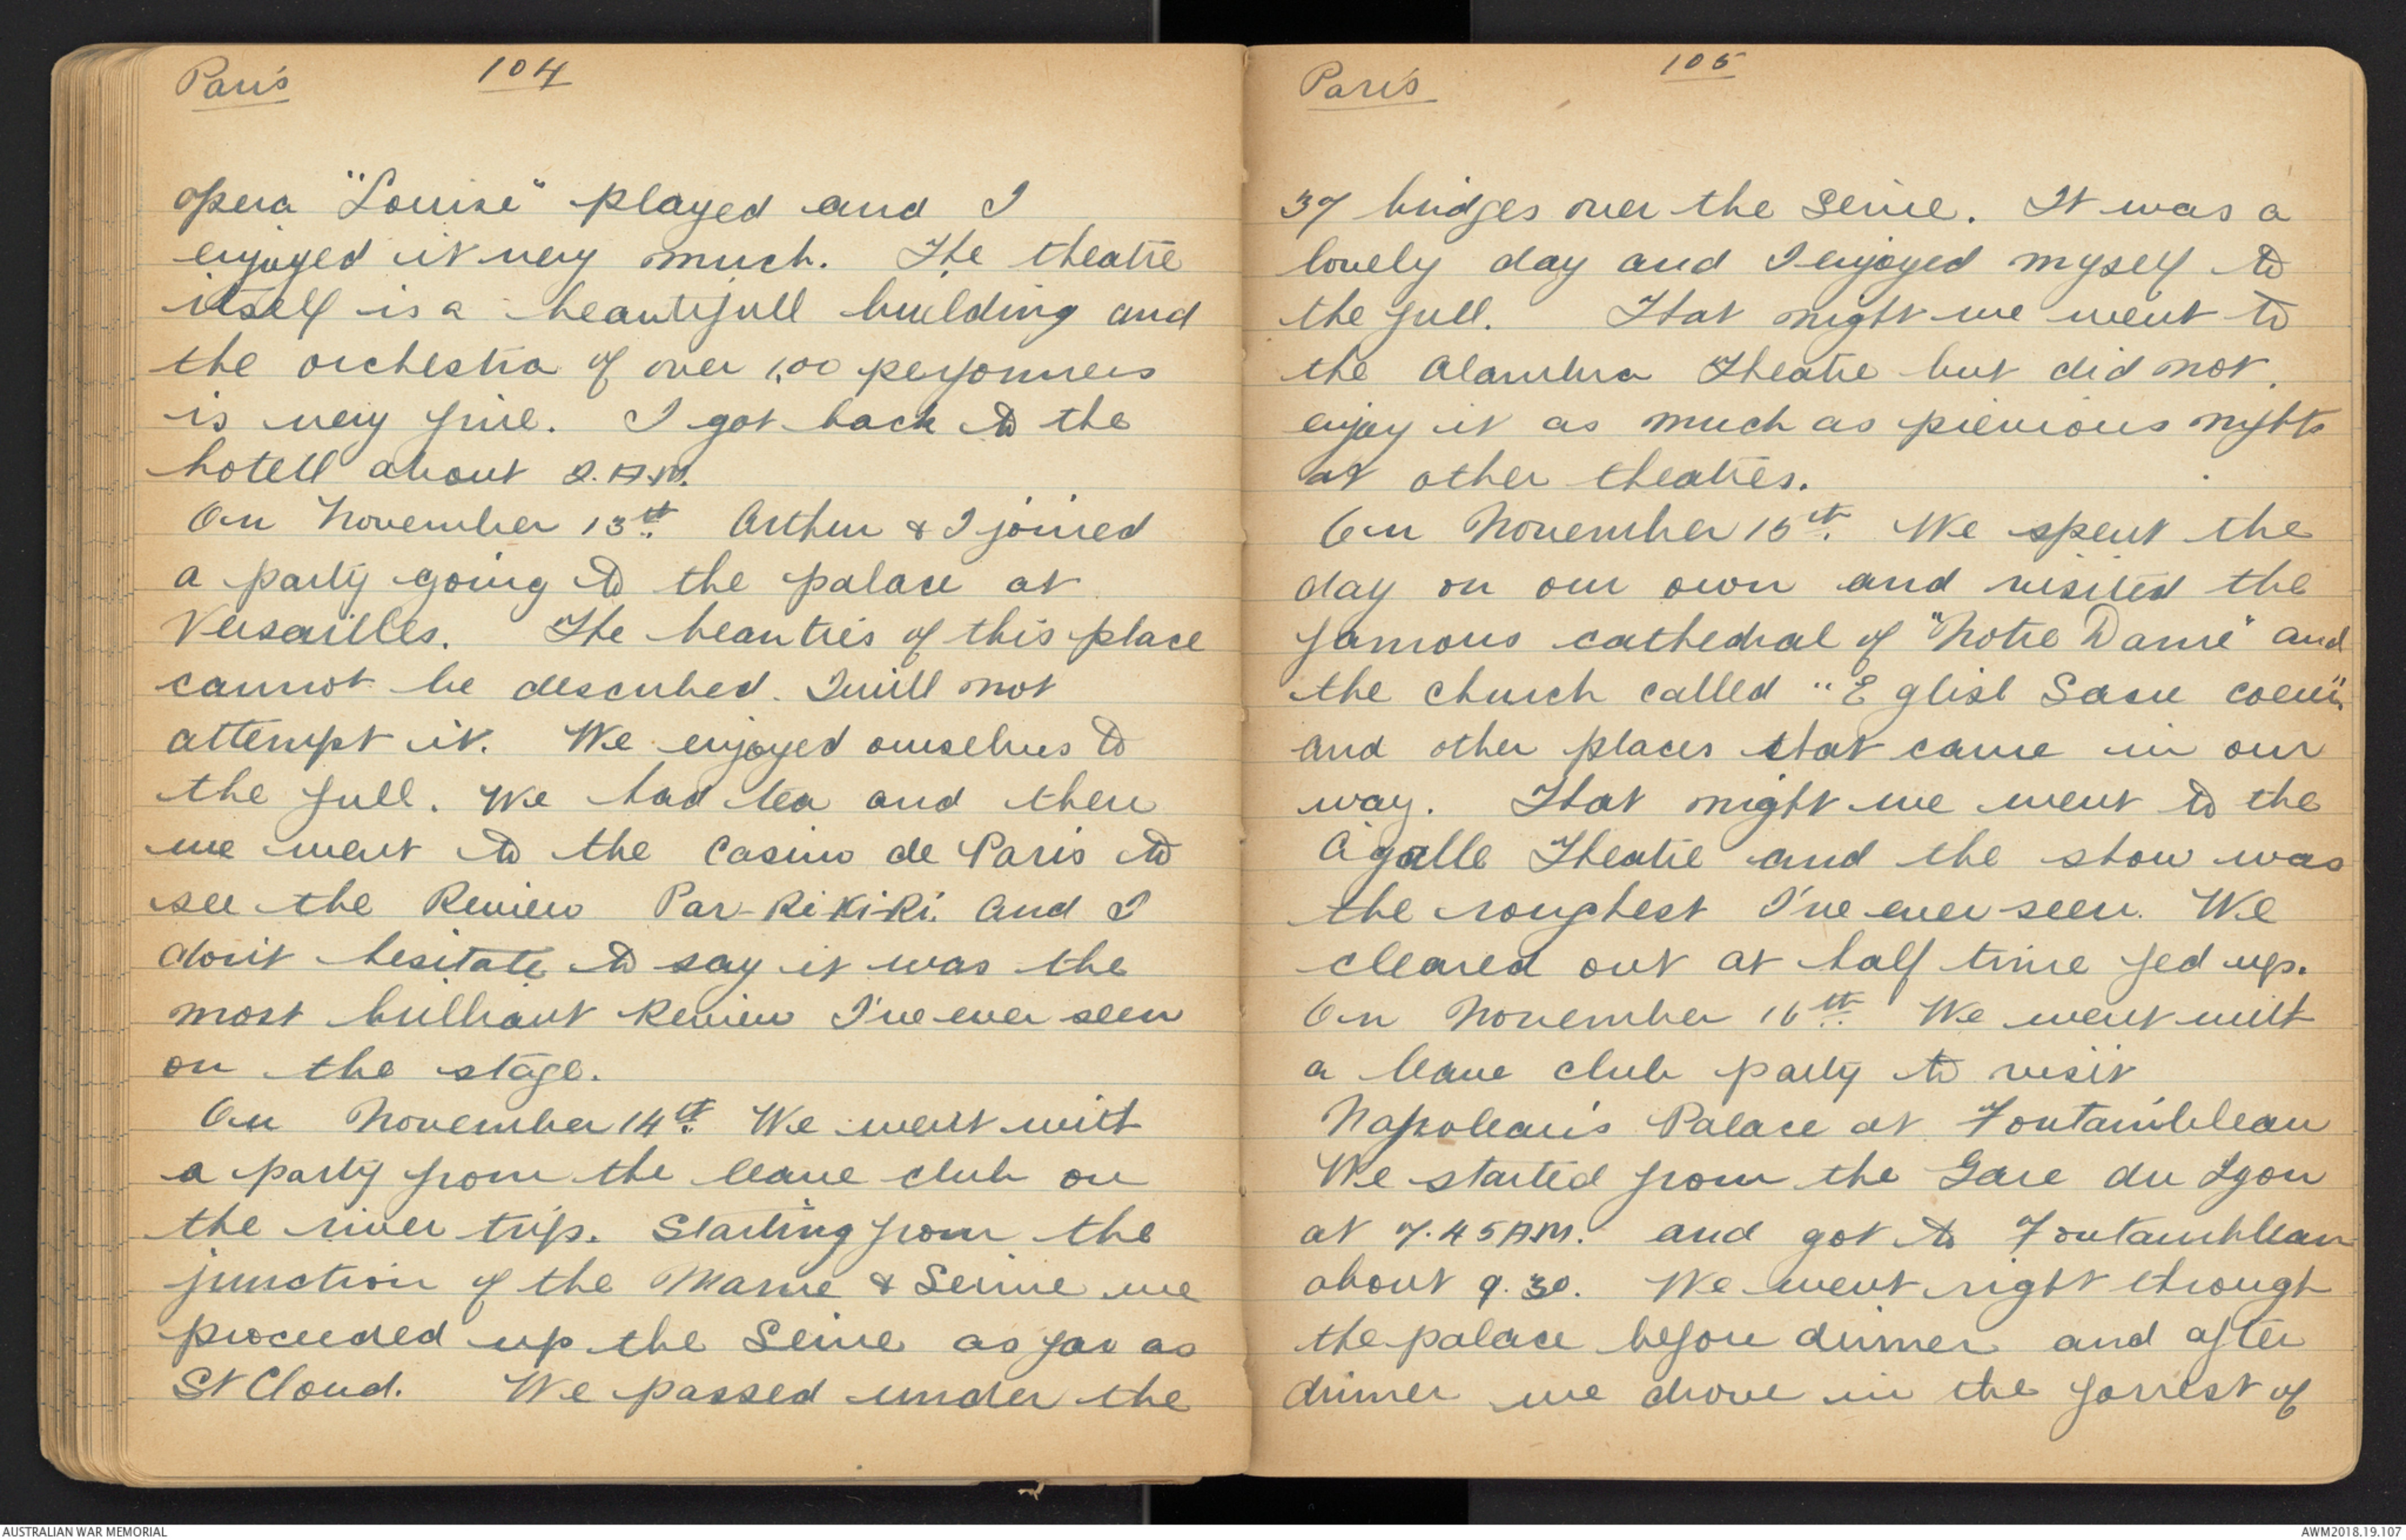 Paris 104
opera "Louise" played and I
enjoyed it very much. The theatre
itself is a beautifull building and
the orchestra of over 100 performers
is very fine. I got back to the
hotell about 2. A.M.
On November 13th. Arthur & I joined
a party going to the palace at
Versailles. The beauties of this place
cannot be described. I will not
attempt it. We enjoyed ourselves to
the full. We had tea and then
we went to the Casino de Paris to
see the Review Pa-Ri-Ki-Ri. And I
don't hesitate to say it was the
most brilliant Review I've ever seen
on the stage.
On November 14th. We went with
a party from the leave club on
the river trip. Starting from the
junction of the Marne & Seine we
proceeded up the Seine as far as
St Cloud. We passed under the
Paris 105
37 bridges over the Seine. It was a
lovely day and I enjoyed myself to
the full. That night we went to
the Alambra Theatre but did not
enjoy it as much as previous nights
at other theatres.
On November 15th. We spent the
day on our own and visited the
famous cathedral of "Notre Dame" and
the church called "Eglise Sacre coeur"
and other places that came in our
way. That night we went to the
Cigalle Theatre and the show was
the roughest I've ever seen. We
cleared out at half time fed up.
On November 16th. We went with
a leave club party to visit
Napolean's Palace at Fontainbleau
We started from the Gare du Lyon
at 7.45 AM. and got to Fontainbleau
about 9.30. We went right through
the palace before dinner and after
dinner we drove in the forrest of
AUSTRALIAN WAR MEMORIAL
AWM2018.19.107